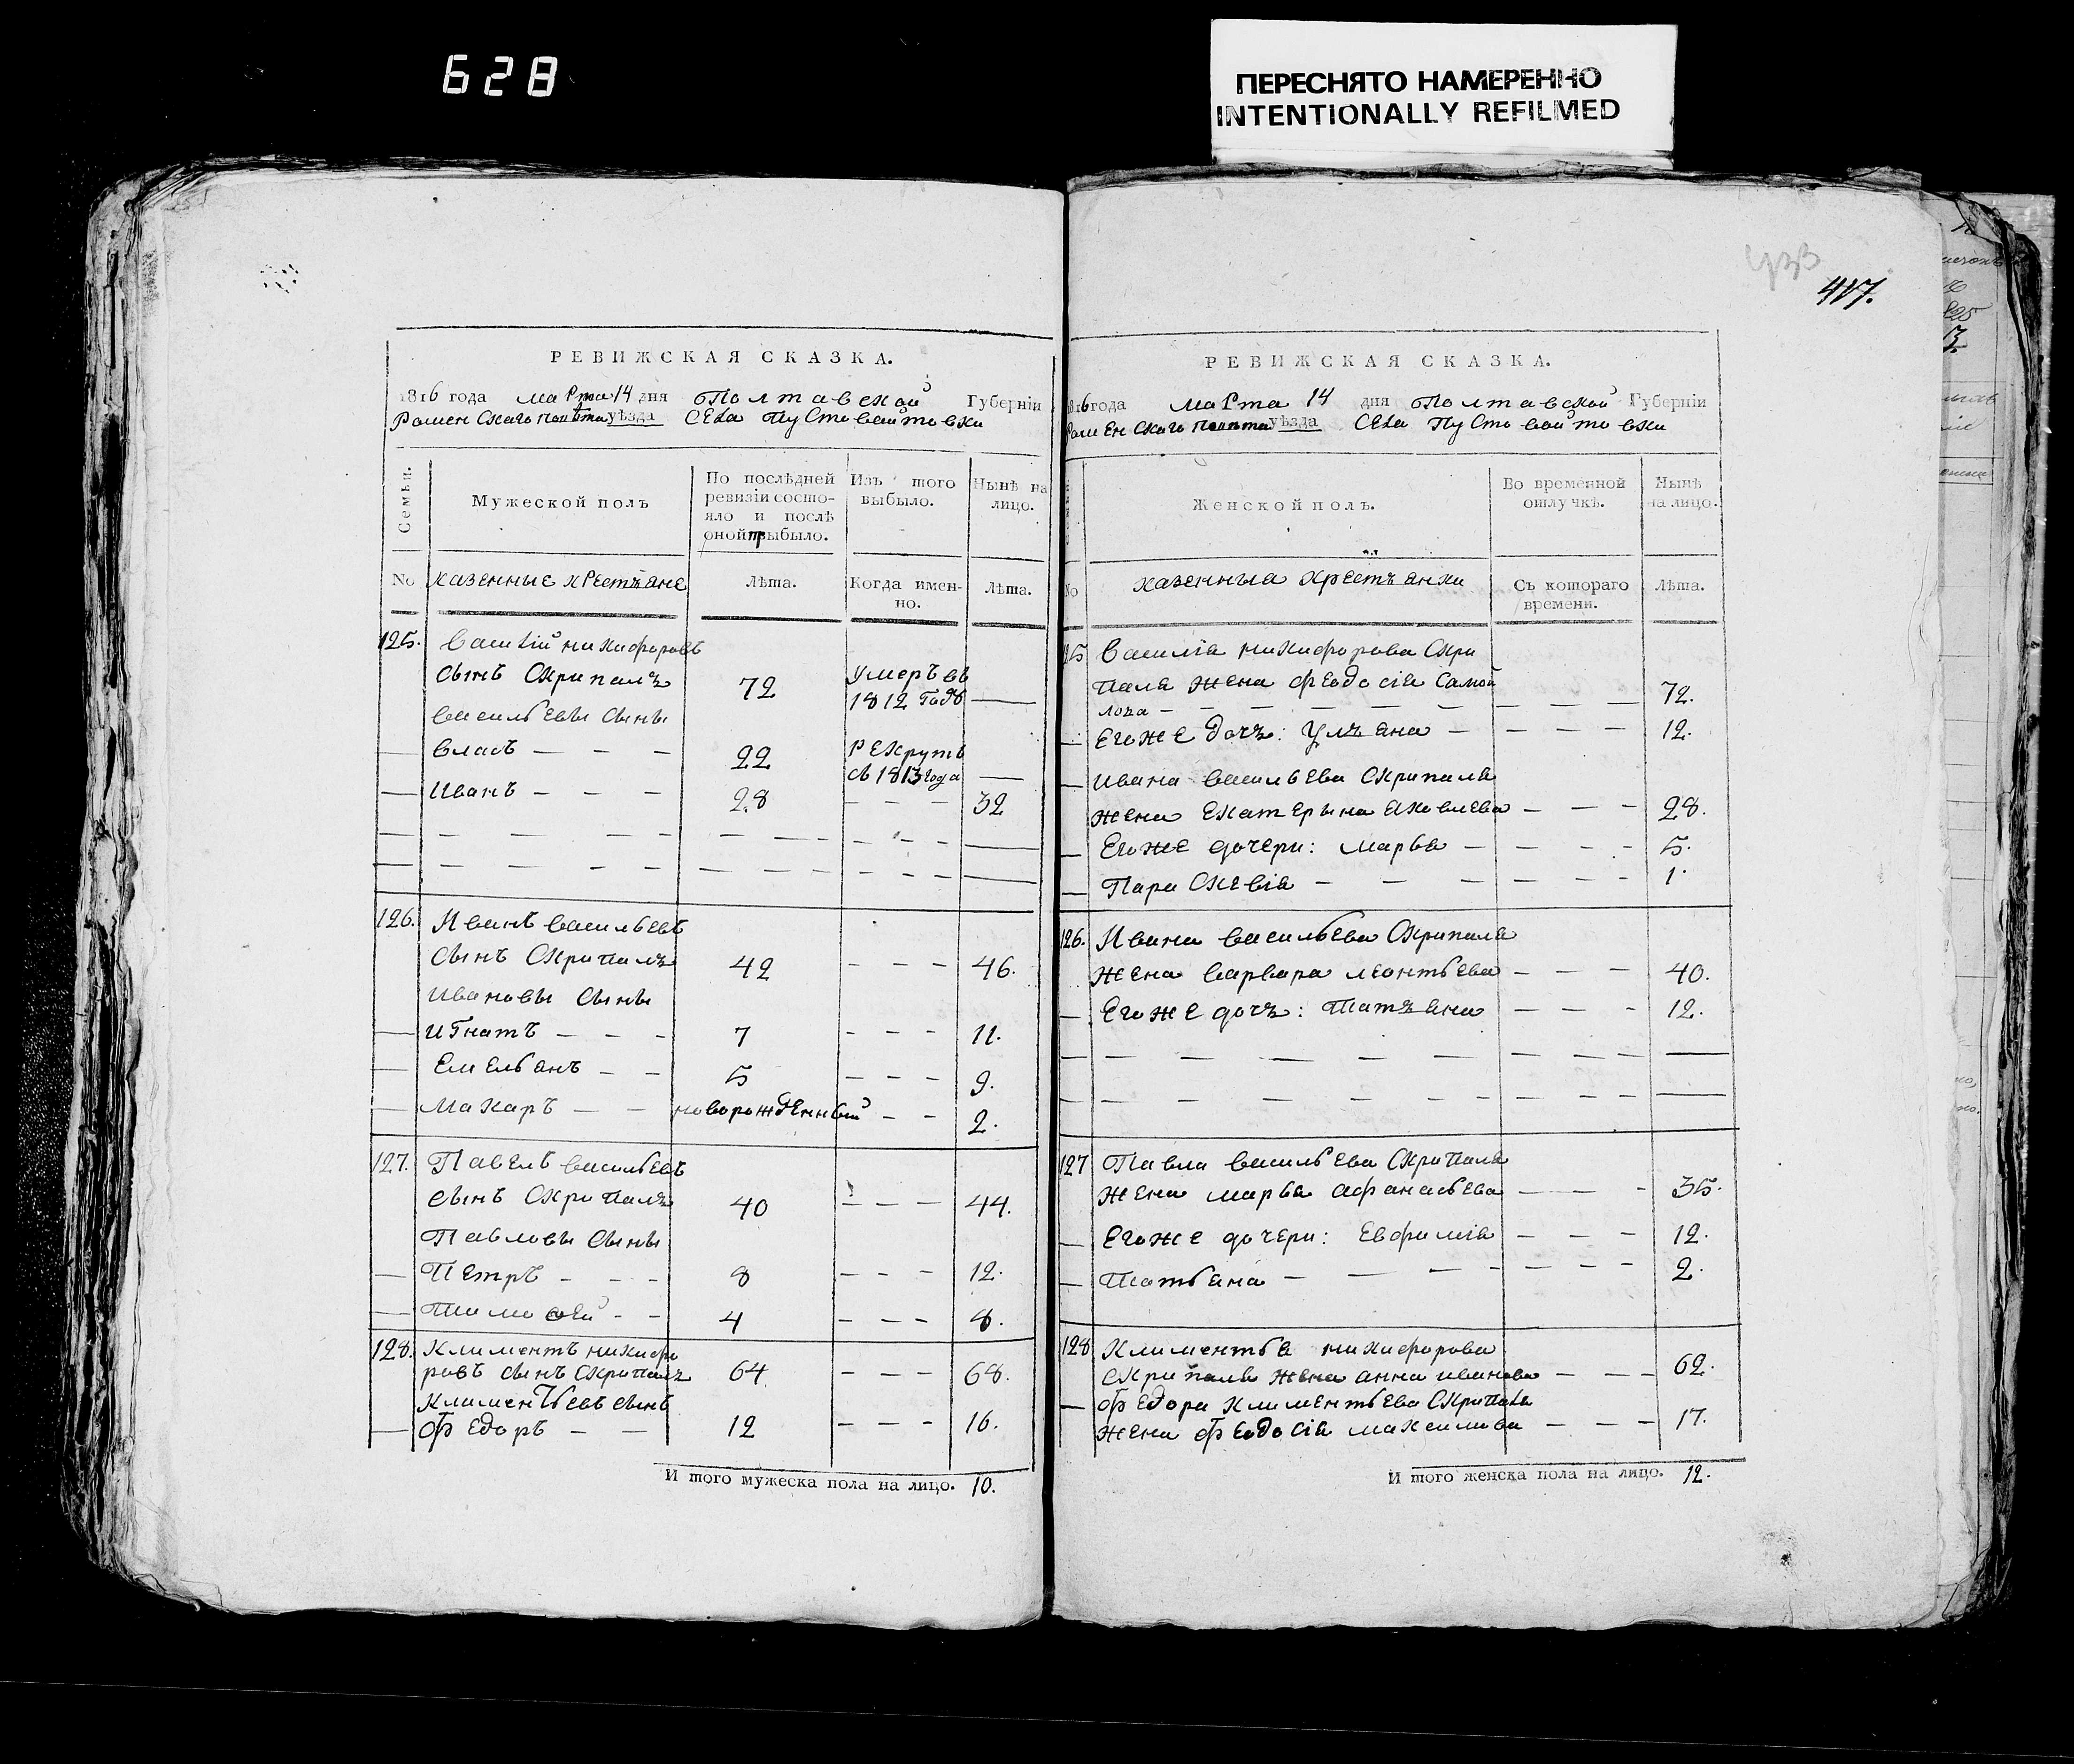 628
ПЕРЕСНЯТО НАМЕРЕННО
INTENTIONALLY REFILMED
417.
РЕВИЖСКАЯ СКАЗКА.
1816 года марта 14 дня Полтавской Губерніи
Роменскаго повѣта уѣзда села Пустовойтовки
Семьи.
Мужеской полъ
По послѣдней ревизіи состо-
яло и послѣ
оной прибыло.
Изъ того выбыло.
Нынѣ на лицо.
No казенные крестъяне
Лѣта.
Когда имен-
но.
Лѣта.
125. василій никифоровъ
сынъ Скрипалъ 72 умеръ въ
1812 годѣ —
васильевы сыны
— власъ — — — 22 рекрутъ
съ 1813 года —
— иванъ — — — 28 — — — 32
126. Иванъ васильевъ
сынъ Скрипалъ 42 — — — 46.
ивановы сыны
— игнатъ — — — 7 — — — 11.
— Емельянъ — — 5 — — — 9.
— макаръ — — новорожденный — — 2.
127. Павелъ васильевъ
сынъ Скрипалъ 40 — — — 44.
Павловы сыны
— Петръ — — — 8 — — — 12.
— Тимофей — — 4 — — — 8.
128. Климентъ никифо
ровъ сынъ Скрипалъ 64 — — — 68.
Климентьевъ сынъ
— Федоръ — — 12 — — — 16.
И того мужеска пола на лицо. 10.
РЕВИЖСКАЯ СКАЗКА.
1816 года марта 14 дня Полтавской Губерніи
Роменскаго повѣта уѣзда села Пустовойтовки
Женской полъ.
Во временной
отлучкѣ.
Нынѣ
на лицо.
No казенныя крестъянки
Съ котораго
времени.
Лѣта.
125 василія никифорова Скри
паля жена феодосія Самой
лова — — — — — — — — 72.
— Егоже дочъ: Улъяна — — — — 12.
— ивана васильева Скрипаля
жена Екатерына яковлева — — — 28.
— Егоже дочери: марья — — — — 5.
— Параскевія — — — — — — 1.
126. Ивана васильева Скрипаля
жена варвара леонтьева — — — 40.
— Егоже дочъ: Татъяна — — — 12.
127 Павла васильева Скрипаля
жена марья афанасьева — — — 35.
— Егоже дочери: Евфимія — — — 12.
— Татьяна — — — — — — — 2.
128 Климентья никифорова
скрипаля жена анна иванова — — — 62.
— Федора Климентьева Скрипаля
жена феодосія максимова — — — 17.
И того женска пола на лицо. 12.